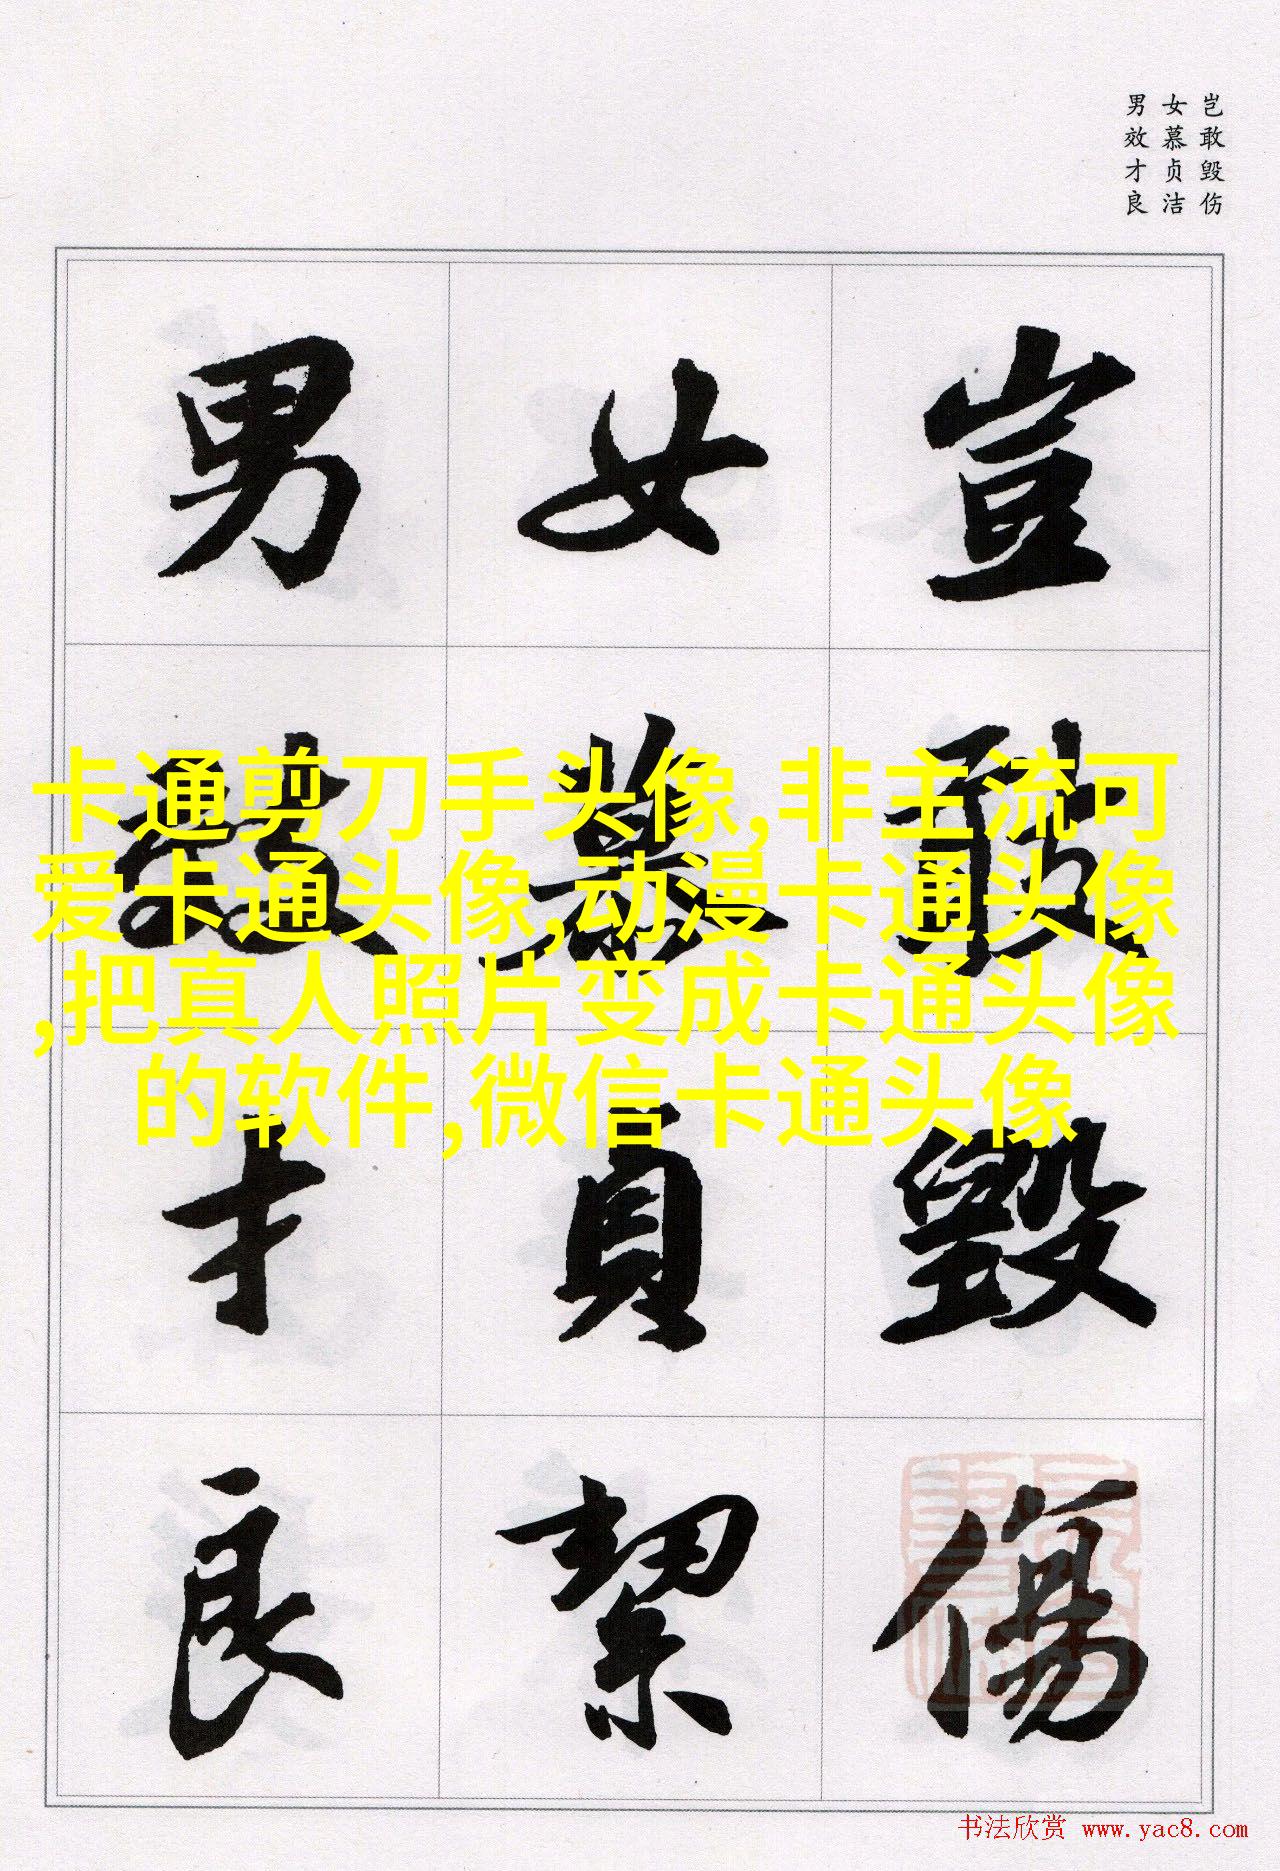 岂敢毁伤
女慕贞洁
男效才良
豈敢毀傷
女慕貞絜
男效才良
卡通剪刀手头像,非主流可
爱卡通头像,动漫卡通头像
,把真人照片变成卡通头像
的软件,微信卡通头像
书法欣赏 www.yac8.com